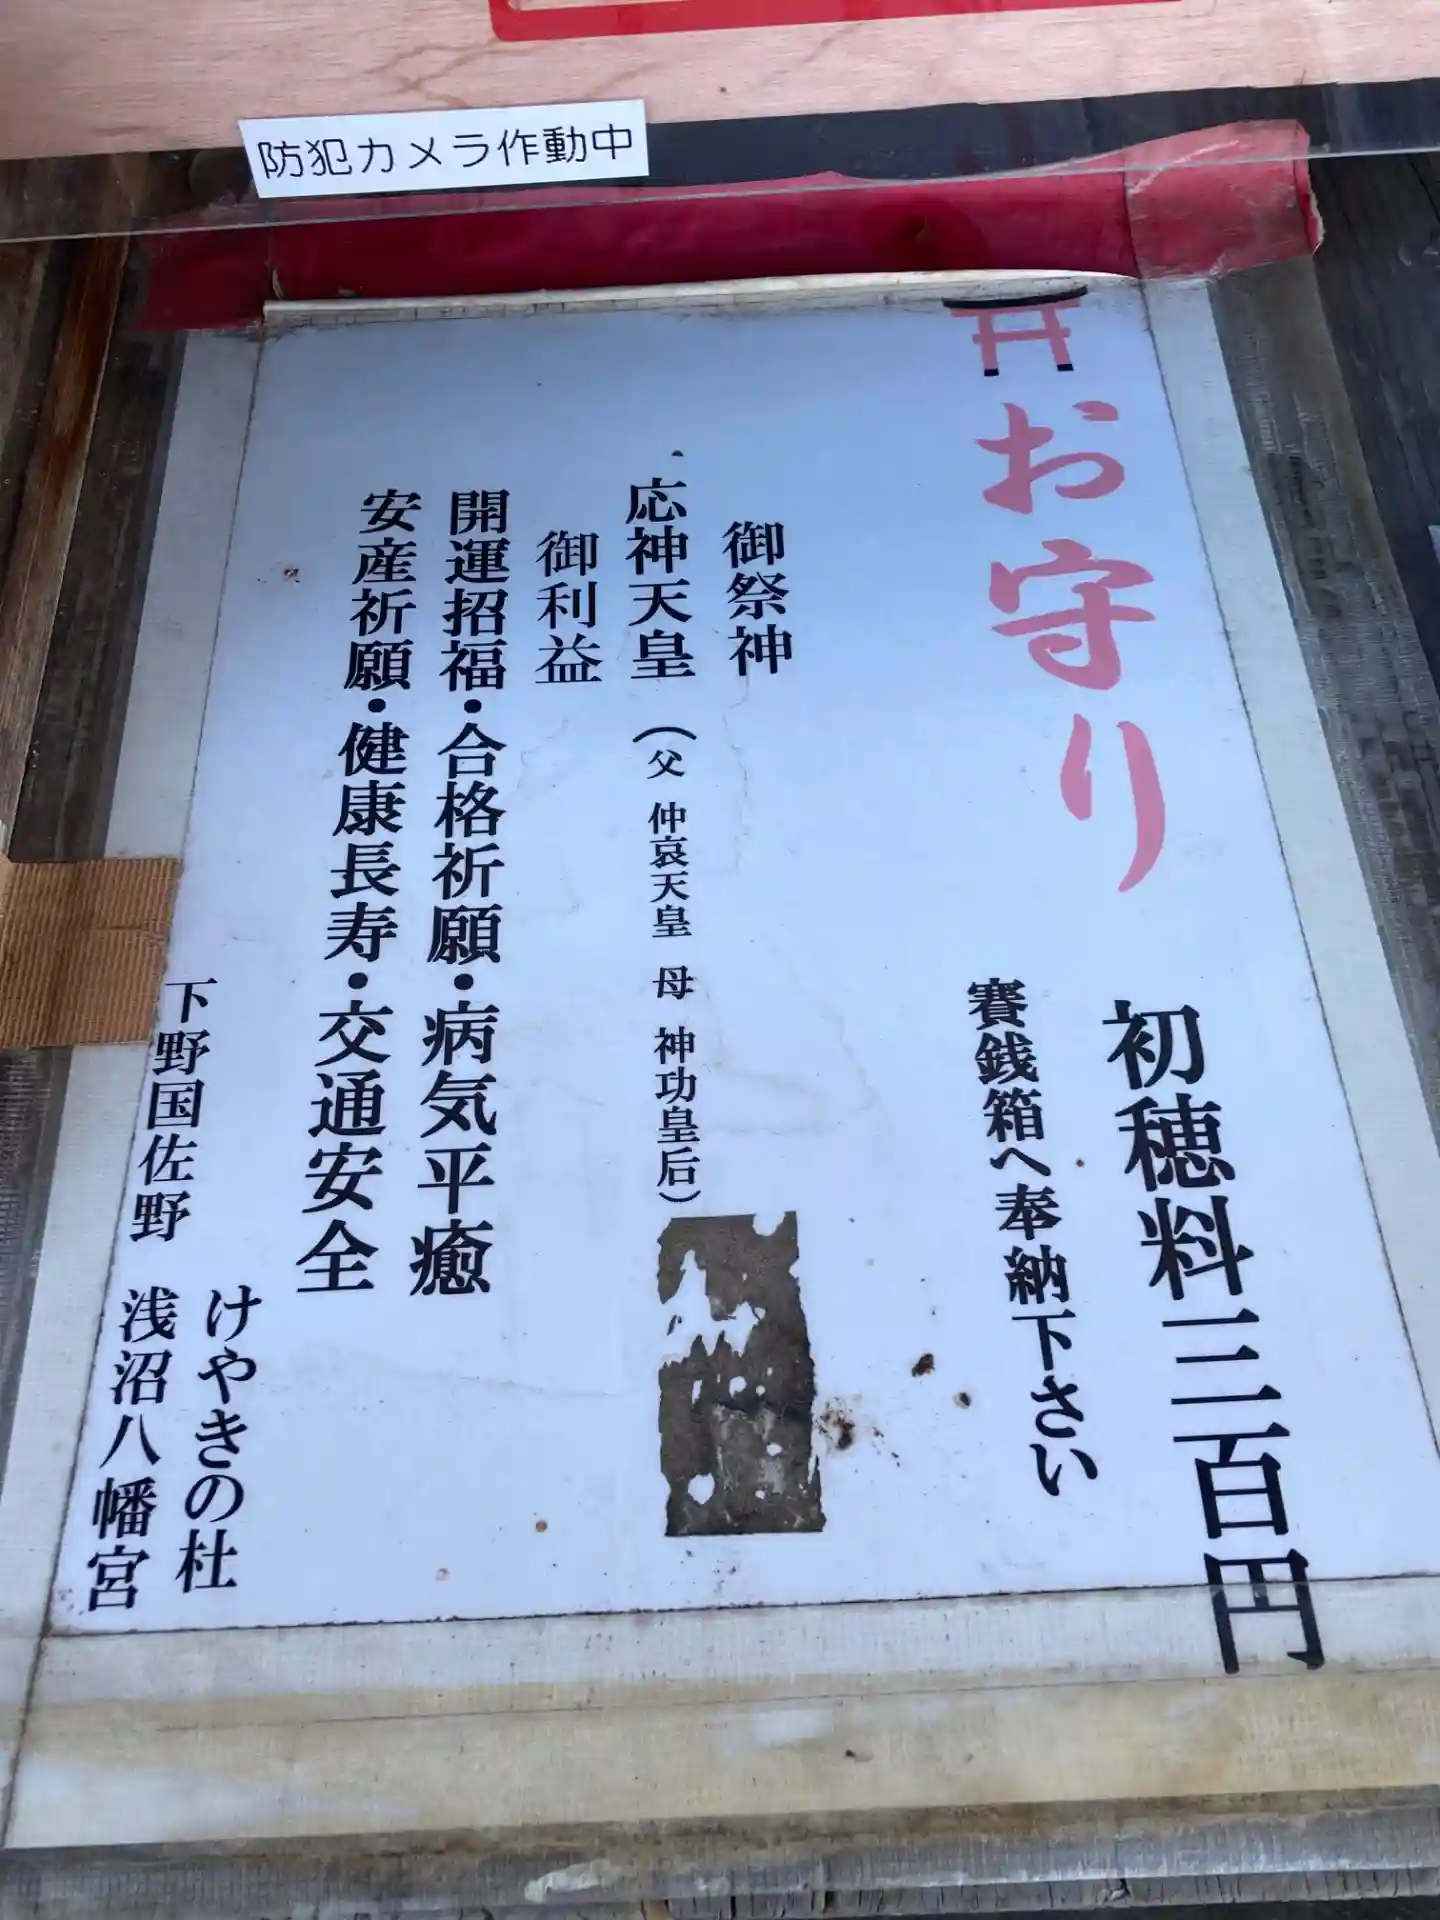 防犯カメラ作動中
お守り
初穂料三百円
賽銭箱へ奉納下さい
御祭神
応神天皇（父 仲哀天皇 母 神功皇后）
御利益
開運招福・合格祈願・病気平癒
安産祈願・健康長寿・交通安全
けやきの杜
下野国佐野 浅沼八幡宮